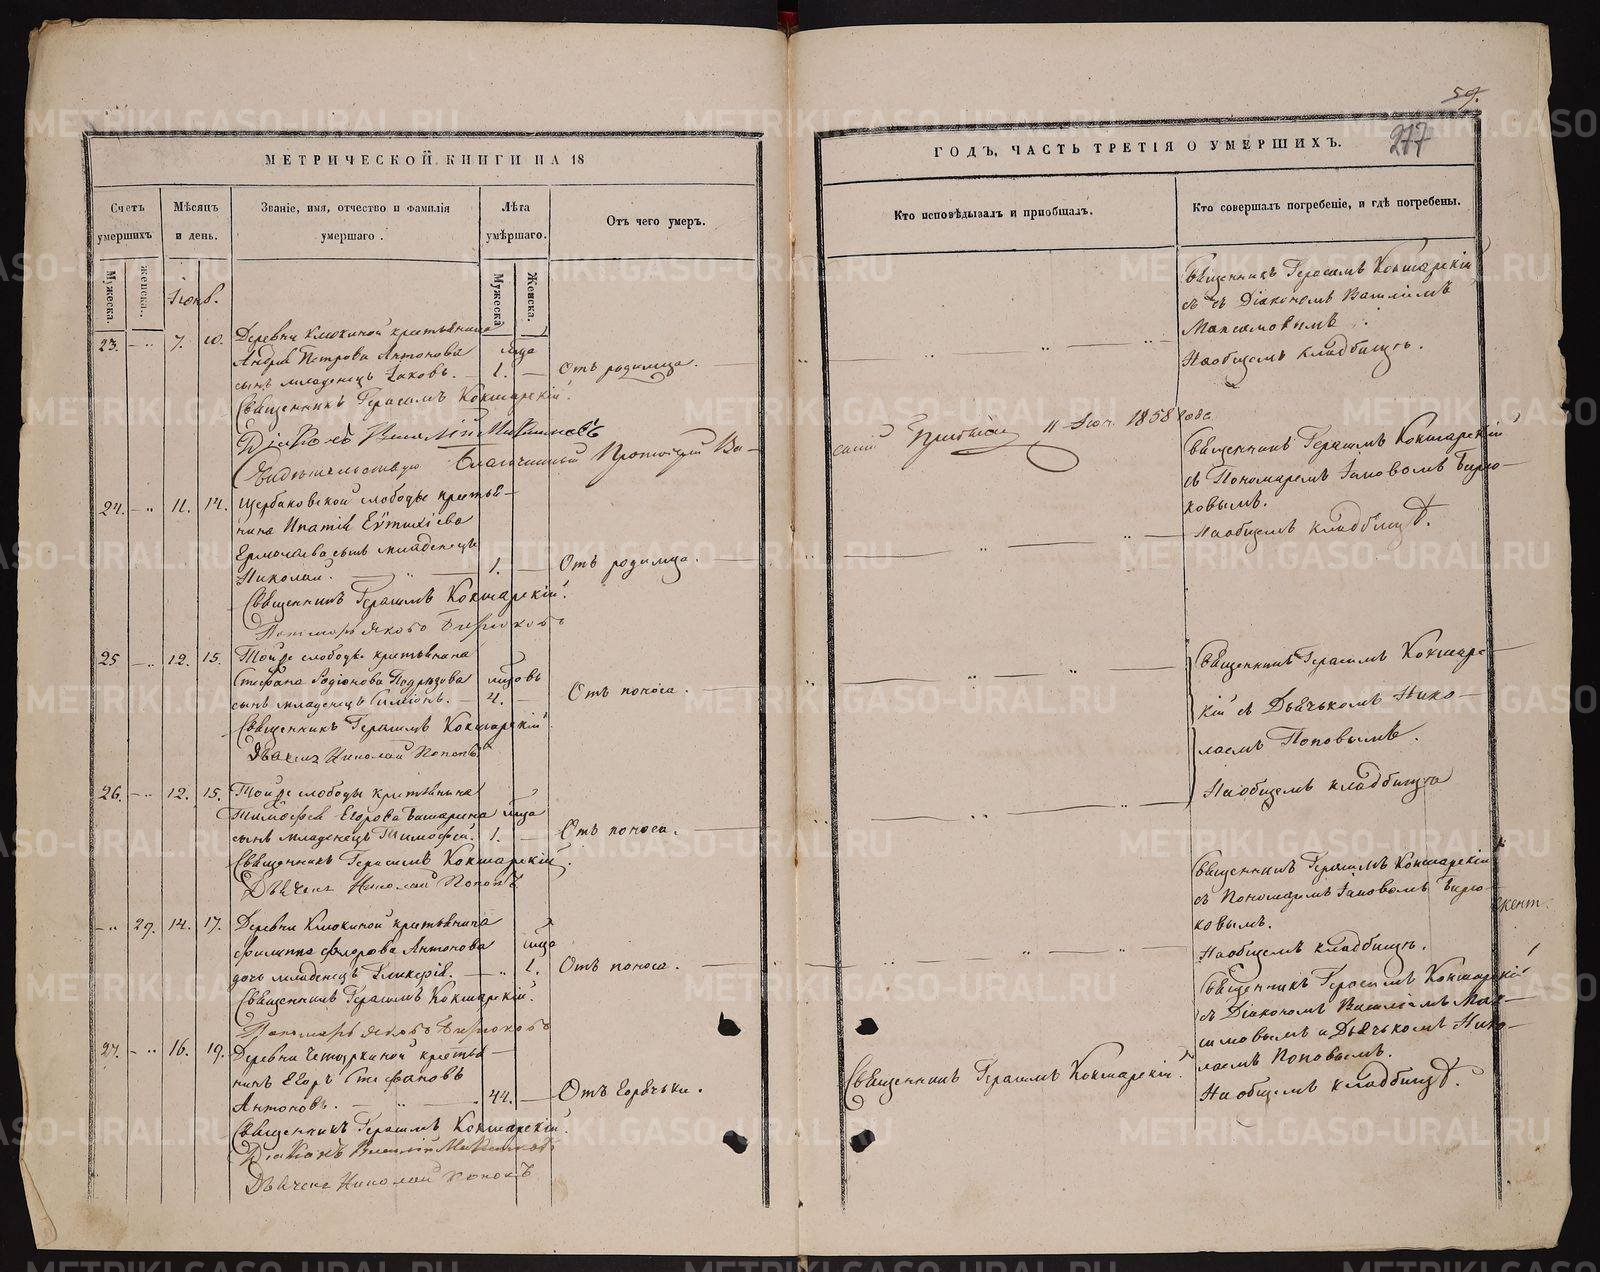 59.
277
МЕТРИЧЕСКОЙ КНИГИ НА 18
ГОДЪ, ЧАСТЬ ТРЕТІЯ О УМЕРШИХЪ.
Счетъ умершихъ
Мѣсяцъ и день.
Званіе, имя, отчество и фамилія умершаго.
Лѣта умѣршаго.
Отъ чего умеръ.
Кто исповѣдывалъ и приобщалъ.
Кто совершалъ погребеніе, и гдѣ погребены.
Мужеска.
Женска.
Мужеска
Женска.
23. 7. 10. Деревни Клюкиной крестьянина
Андрея Петрова Антонова
сынъ младенецъ Іаковъ. 1. Отъ родимца.
Священникъ Герасимъ Кокшарскій.
Діаконъ Василій
Свидѣтельствую Благочинный Протоіерей
11 1858 года
Священникъ Герасимъ Кокшарскій
съ Діакономъ Василіемъ
Максимовымъ
На общемъ кладбищѣ.
24. 11. 14. Щербаковской слободы крестья-
нина Ипатія Евтихіева
Ермолаева сынъ младенецъ
Николай. 1. Отъ родимца.
Священникъ Герасимъ Кокшарскій.
Пономарь Яковъ Бирюковъ
Священникъ Герасимъ Кокшарскій
съ Пономаремъ Іаковомъ Бирю-
ковымъ.
На общемъ кладбищѣ.
25 12. 15. Той же слободы крестьянина
Стефана Родіонова
сынъ младенецъ Симеонъ. 4. Отъ поноса.
Священникъ Герасимъ Кокшарскій
Дьячекъ Николай Поповъ
Священникъ Герасимъ Кокшарс-
кій съ Дьячькомъ Нико-
лаемъ Поповымъ.
На общемъ кладбищѣ
26. 12. 15. Той же слободы крестьянина
Тимофея Егорова Башарина
сынъ младенецъ Тимофей. 1. Отъ поноса.
Священникъ Герасимъ Кокшарскій.
Дьячекъ Николай Поповъ
29. 14. 17. Деревни Клюкиной крестьянина
Филиппа Федорова Антонова
дочь младенецъ Гликерія. 1. Отъ поноса.
Священникъ Герасимъ Кокшарскій.
Пономарь Яковъ Бирюковъ
Священникъ Герасимъ Кокшарскій
съ Пономаремъ Іаковомъ Бирю-
ковымъ.
На общемъ кладбищѣ.
27. 16. 19. Деревни крестья-
нинъ Егоръ Стефановъ
Антоновъ. 44. Отъ горячьки.
Священникъ Герасимъ Кокшарскій.
Діаконъ Василій Максимовъ
Дьячекъ Николай Поповъ
Священникъ Герасимъ Кокшарскій.
Священникъ Герасимъ Кокшарскій
съ Діакономъ Василіемъ Мак-
симовымъ и Дьячькомъ Нико-
лаемъ Поповымъ.
На общемъ кладбищѣ.
METRIKI.GASO-URAL.RU